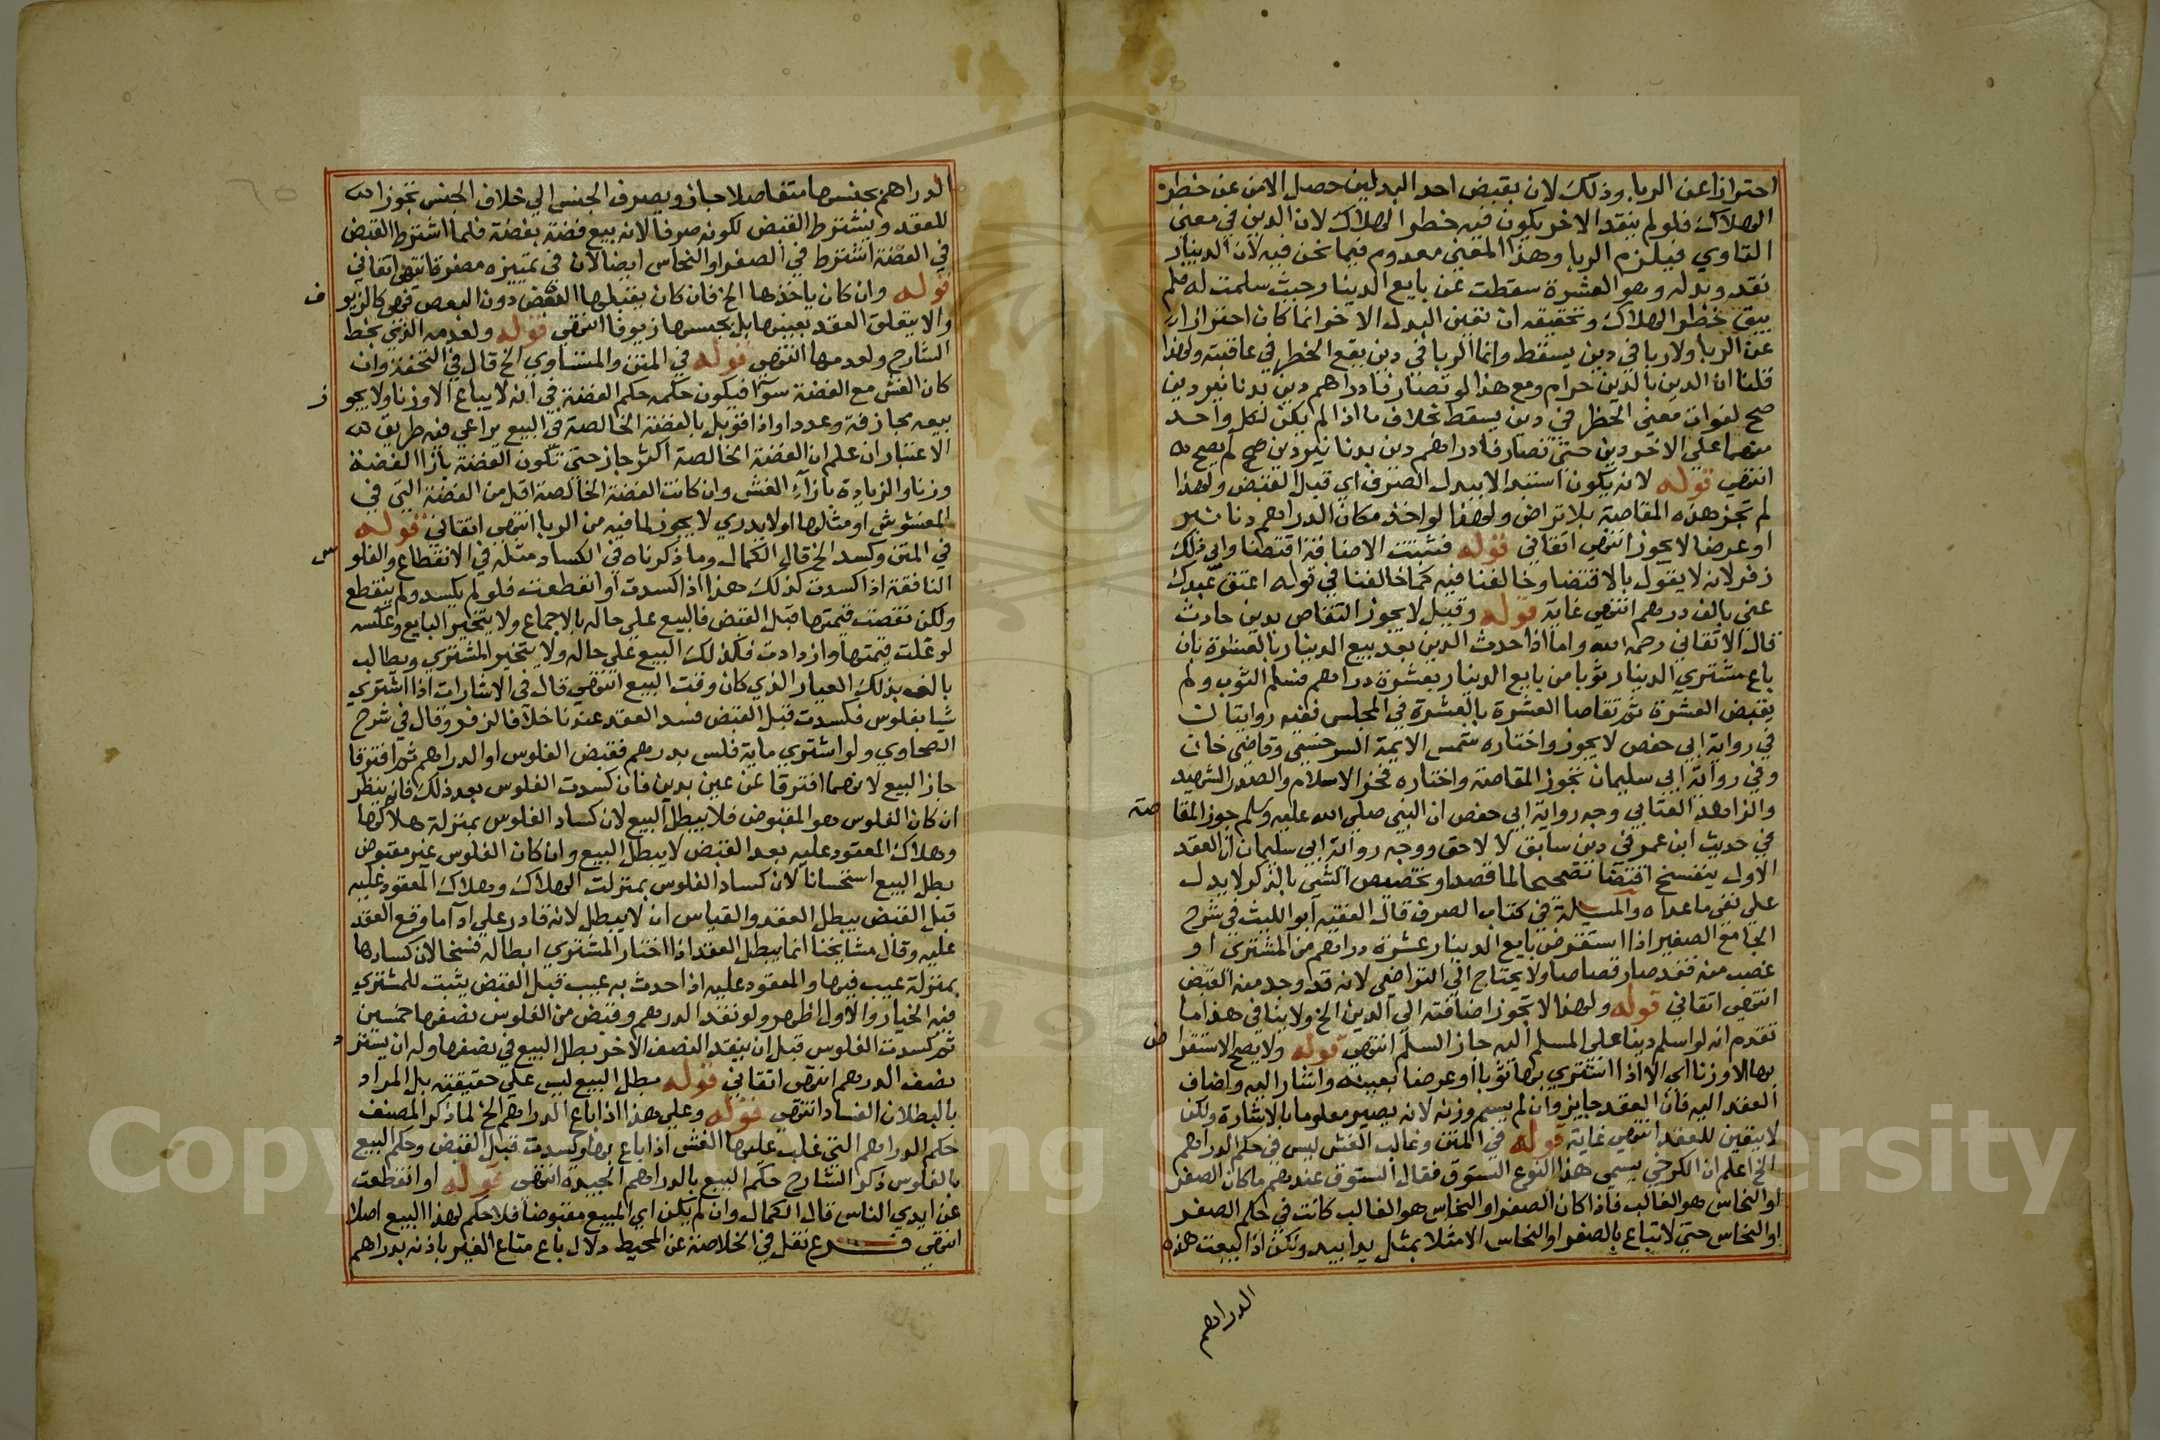 احترازا عن الربا وذلك لان بقبض احد البدلين حصل الامن عن خطر
الهلاك فلو لم ينقد الاخر يكون فيه خطر الهلاك لان الدين في معني
التاوي فيلزم الربا وهذا المعني معدوم فيما نحن فيه لان الدينار
نقد وبدله وهو العشرة سقطت عن بايع الدينار حيث سلمت له فلم
يبق خطر الهلاك وتحقيقه ان تعين البدل الاخر انما كان احترازا
عن الربا ولا ربا في دين يسقط وانما الربا في دين يقع الخطر في عاقبته ولهذا
قلنا ان الدين بالدين حرام ومع هذا لو تصارفا دراهم دين بدنانير دين
صح لفوات معني الخطر في دين يسقط بخلاف ما اذا لم يكن لكل واحد
منهما علي الاخر دين حتي تصارفا دراهم دين بدنانير دين لم يصح
انتهي قوله لانه يكون استبدالا ببدل الصرف اي قبل القبض ولهذا
لم تجز هذه المقاصة بلا تراض ولهذا لو اخذ مكان الدراهم دنانير
او عرضا لا يجوز انتهي اتقاني قوله فثبتت الاضافة اقتضا وابي ذلك
زفر لانه لا يقول بالاقتضا وخالفنا فيه كما خالفنا في قوله اعتق عبدك
عني بالف درهم انتهي غاية قوله وقيل لا يجوز التقاص بدين حادث
قال الاتقاني رحمه الله واما اذا حدث الدين بعد بيع الدينار بالعشرة بان
باع مشتري الدينار ثوبا من بايع الدينار بعشرة دراهم فسلم الثوب ولم
يقبض العشرة ثم تقاصا العشرة بالعشرة في المجلس ففيه روايتان
في رواية ابي حفص لا يجوز واختاره شمس الايمة السرخسي وقاضي خان
وفي رواية ابي سليمان تجوز المقاصة واختاره فخر الاسلام والصدر الشهيد
والزاهد العتابي وجه رواية ابي حفص ان النبي صلي الله عليه وسلم جوز المقا
صة
في حديث ابن عمر في دين سابق لا لاحق ووجه رواية ابي سليمان ان العقد
الاول ينفسخ اقتضا تصحيحا لما قصدا وتخصيص الشي بالذكر لا يدل
علي نفي ما عداه والمسيلة في كتاب الصرف قال الفقيه ابو الليث في شرح
الجامع الصغير اذا استقرض بايع الدينار عشرة دراهم من المشتري او
غصب منه فقد صار قصاصا ولا يحتاج الي التراضي لانه قد وجد منه القبض
انتهي اتقاني قوله ولهذا لا تجوز اضافته الي الدين الخ ولا ينافي هذا ما
تقدم انه لو اسلم دينا علي المسلم اليه جاز السلم انتهي قوله ولا يصح الاستقرا
ض
بها الا وزنا اي الا اذا اشتري بها ثوبا او عرضا بعينه واشار اليه واضاف
العقد اليه فان العقد جايز وان لم يسم وزنه لانه يصير معلوما بالاشارة ولكن
لا يتعين للعقد انتهي غاية قوله في المتن وغالب الغش ليس في حكم الدراهم
الخ اعلم ان الكرخي يسمي هذا النوع الستوق فقال الستوق عندهم ما كان الصفر
او النحاس هو الغالب فاذا كان الصفر او النحاس هو الغالب كانت في حكم الصفر
او النحاس حتي لا تباع بالصفر او النحاس الا مثلا بمثل يدا بيد ولكن اذا بيعت هذه
الدراهم
الدراهم بجنسها متفاضلا جاز ويصرف الجنس الي خلاف الجنس تجوزا
للعقد ويشترط القبض لكونه صرفا لانه بيع فضة بفضة فلما اشترط القبض
في الفضة اشترط في الصفر او النحاس ايضا لان في تمييزه مضرة انتهي اتقاني
قوله وان كان ياخذها الخ فان كان يقبلها البعض دون البعض فهي كالزيو
ف
والا يتعلق العقد بعينها بل بجنسها زيوفا انتهي قوله ولعدمه الذي بخط
الشارح ولعدمها انتهي قوله في المتن والمتساوي الخ قال في التحفة وان
كان الغش مع الفضة سوا فيكون حكمه حكم الفضة في انه لا يباع الا وزنا ولا يجو
ز
بيعه مجازفة وعددا واذا قوبل بالفضة الخالصة في البيع يراعي فيه طريق
الاعتبار ان علم ان الفضة الخالصة اكثر جاز حتي تكون الفضة بازا الفضة
وزنا والزيادة بازاء الغش وان كانت الفضة الخالصة اقل من الفضة التي في
المغشوش او مثلها او لا يدري لا يجوز لما فيه من الربا انتهي اتقاني قوله
في المتن وكسد الخ قال الكمال وما ذكرناه في الكساد مثله في الانقطاع والفلو
س
النافقة اذا كسدت كذلك هذا اذا كسدت او انقطعت فلو لم يكسد ولم ينقطع
ولكن نقصت قيمتها قبل القبض فالبيع علي حاله بالاجماع ولا يتخير البايع وعكسه
لو غلت قيمتها وازدادت فكذلك البيع علي حاله ولا يتخير المشتري ويطالب
بالنقد بذلك العيار الذي كان وقت البيع انتهي قال في الاشارات اذا اشتري
شيا بفلوس فكسدت قبل القبض فسد العقد عندنا خلافا لزفر وقال في شرح
الطحاوي ولو اشتري ماية فلس بدرهم فقبض الفلوس او الدراهم ثم افترقا
جاز البيع لانهما افترقا عن عين بدين فان كسدت الفلوس بعد ذلك فانه ينظر
ان كان الفلوس هو المقبوض فلا يبطل البيع لان كساد الفلوس بمنزلة هلاكها
وهلاك المعقود عليه بعد القبض لا يبطل البيع وان كان الفلوس غير مقبوض
بطل البيع استحسانا لان كساد الفلوس بمنزلت الهلاك وهلاك المعقود عليه
قبل القبض يبطل العقد والقياس ان لا يبطل لانه قادر علي اداء ما وقع العقد
عليه وقال مشايخنا انما يبطل العقد اذا اختار المشتري ابطاله فسخا لان كسادها
بمنزلة عيب فيها والمعقود عليه اذا حدث به عيب قبل القبض يثبت للمشتري
فيه الخيار والاول اظهر ولو نقد الدرهم وقبض من الفلوس نصفها خمسين
ثم كسدت الفلوس قبل ان ينقد النصف الاخر بطل البيع في نصفها وله ان يستر
د
نصف الدرهم انتهي اتقاني قوله بطل البيع ليس علي حقيقته بل المراد
بالبطلان الفساد انتهي قوله وعلي هذا اذا باع الدراهم الخ لما ذكر المصنف
حكم الدراهم التي غلب عليها الغش اذا باع بها وكسدت قبل القبض وحكم البيع
بالفلوس ذكر الشارح حكم البيع بالدراهم الجيدة انتهي قوله او انقطعت
عن ايدي الناس قال الكمال وان لم يكن اي المبيع مقبوضا فلا حكم لهذا البيع اصلا
انتهي فرع نقل في الخلاصة عن المحيط دلال باع متاع الغير باذنه بدراهم
Copy ng ersity